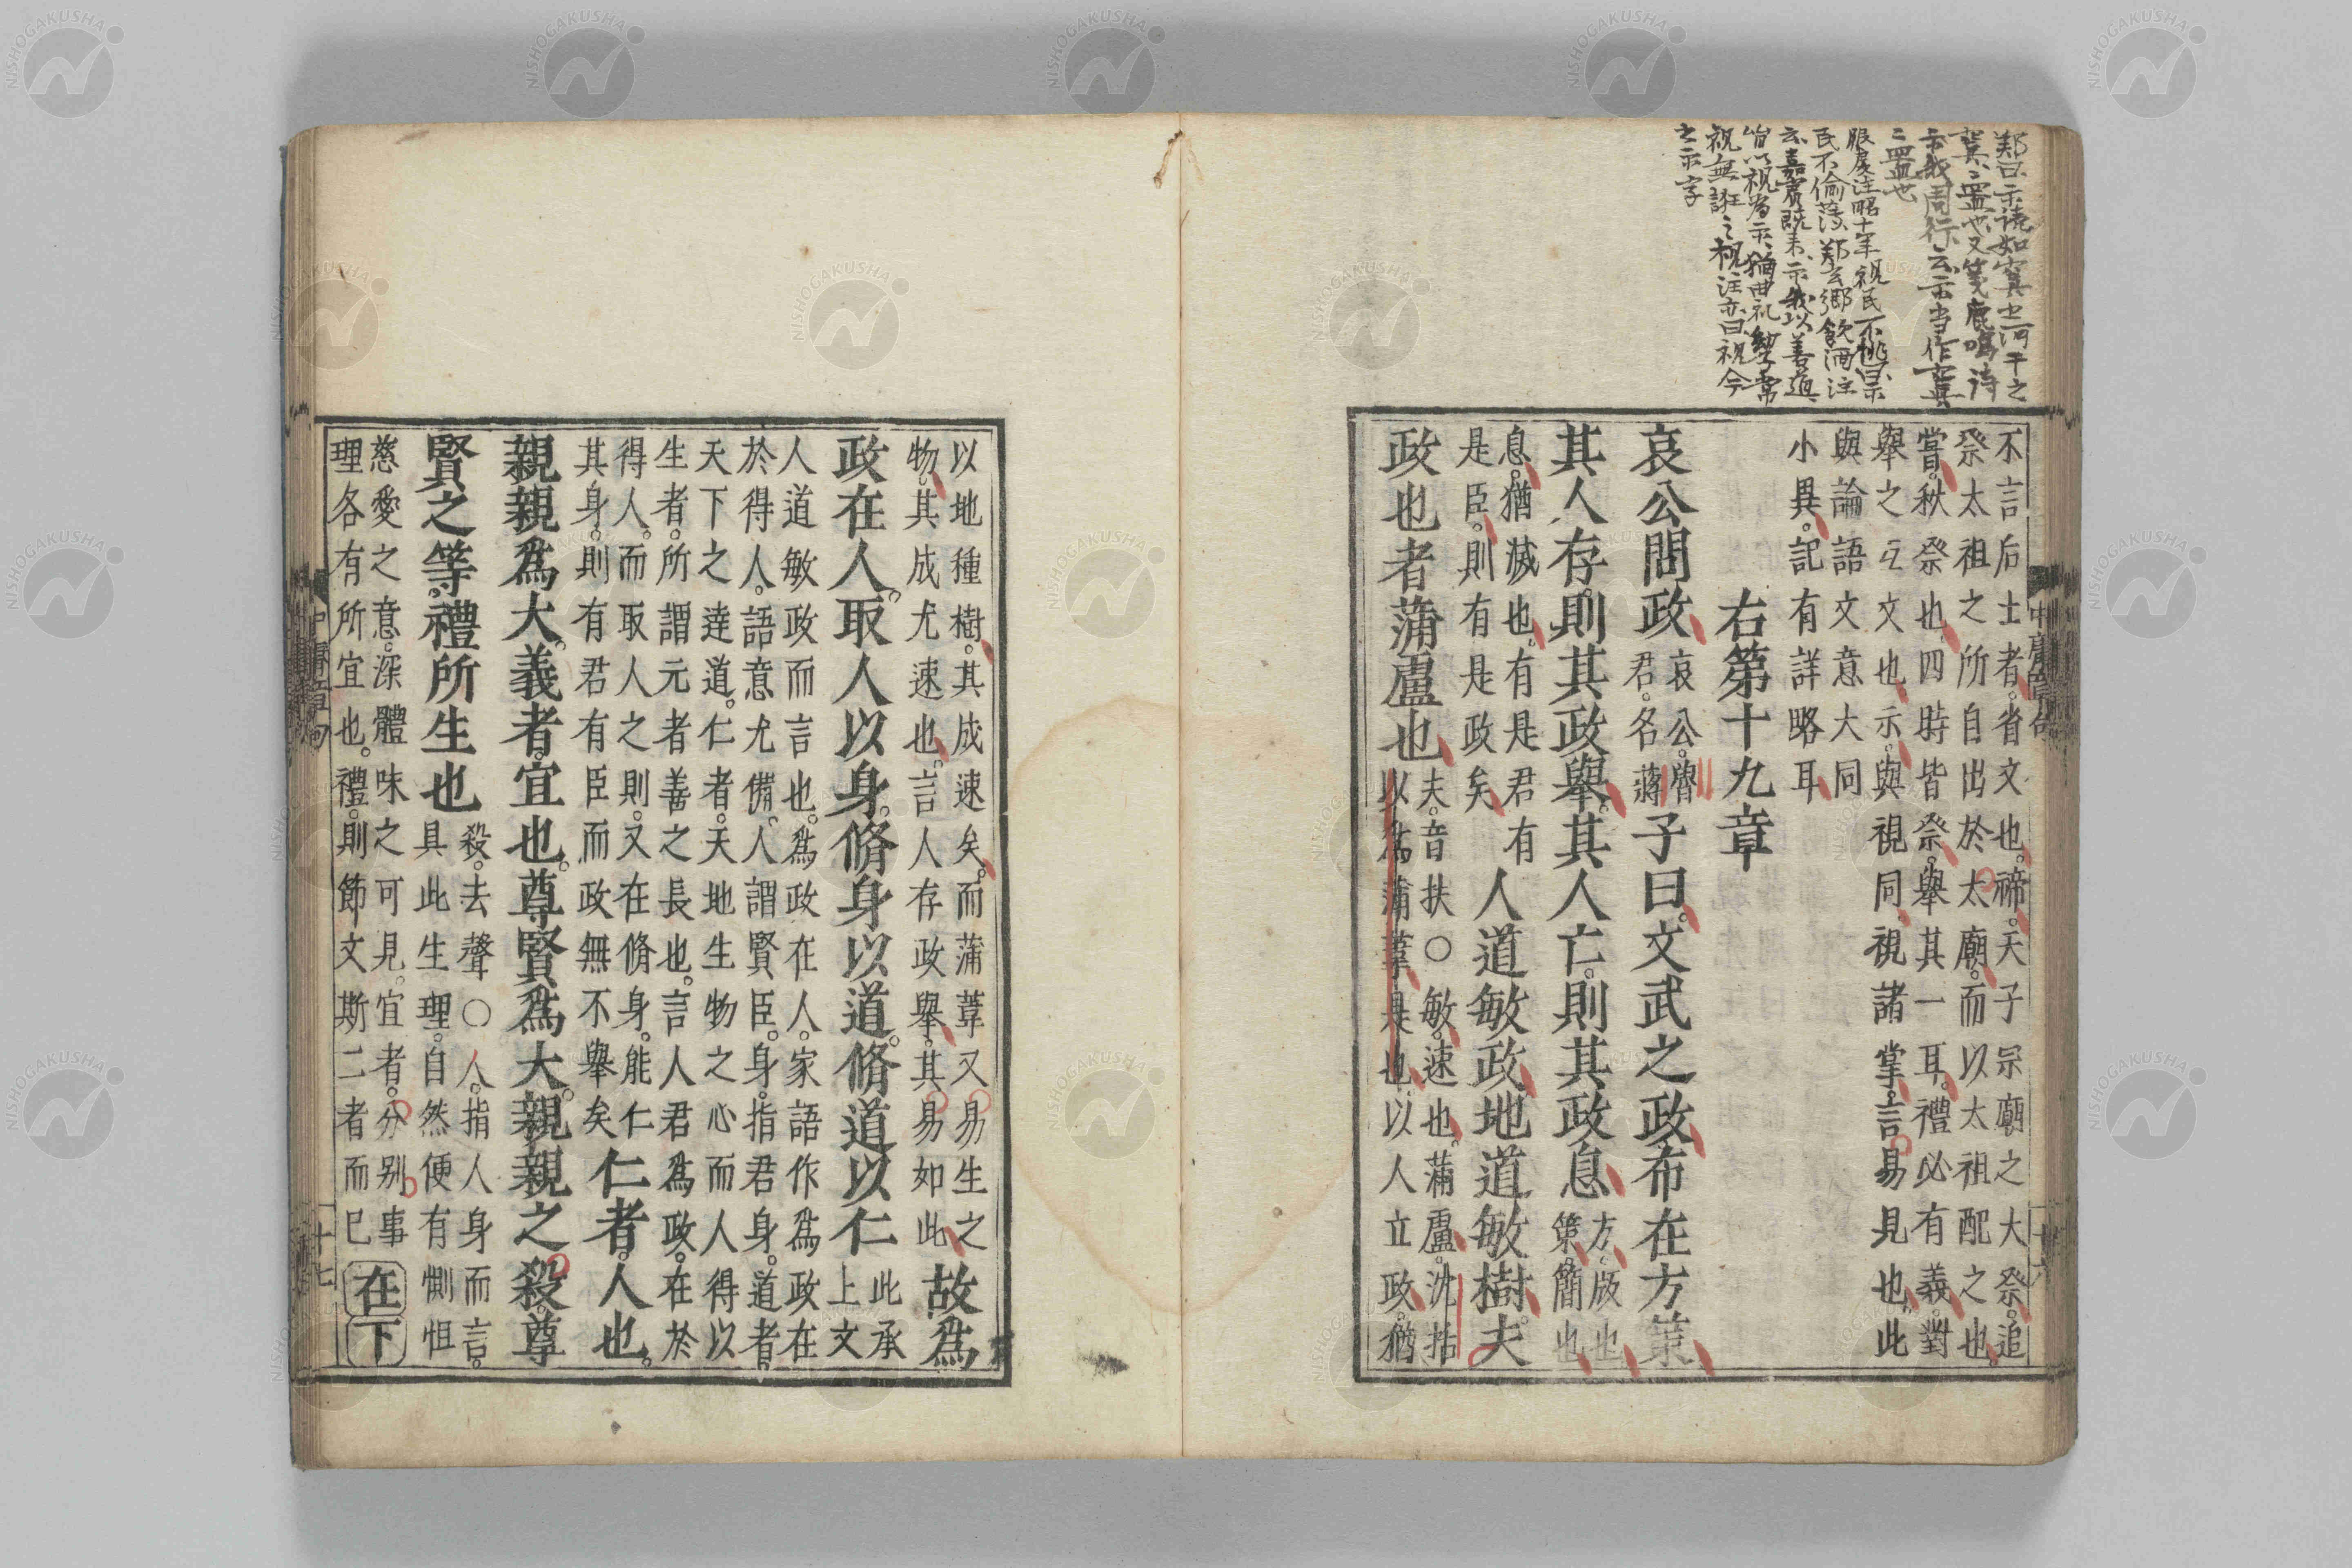 鄭曰示讀如寘之河干之
寘、置也、又箋鹿鳴詩
示我周行、云示当作寘
置也
服虔注昭十年視民不恌曰示
民不偷薄、鄭玄鄉飲酒注
云嘉賓既来示我以善道
皆以視為示、猶曲礼幼子常
視無誑之視注亦曰視今
之示字
不言后土者。省文也。禘。天子宗廟之大祭。追
祭太祖之所自出於太廟。而以太祖配之也。
嘗。秋祭也。四時皆祭。舉其一耳。禮必有義。對
舉之互文也。示。與視同。視諸掌。言易見也。此
與論語文意大同
小異。記有詳略耳
右第十九章
哀公問政
哀公。魯
君。名蔣
子曰。文武之政布在方策
其人存則其政舉。其人亡。則其政息
方。版也
策。簡也
息。猶滅也。有是君有
是臣。則有是政矣
人道敏政地道敏樹。夫
政也者蒲盧也
夫。音扶〇敏。速也。蒲盧。沈括
以爲蒲葦。是也。以人立政。猶
以地種樹。其成速矣。而蒲葦又易生之
物。其成尤速也。言人存政舉。其易如此
故爲
政在人。取人以身。脩身以道。脩道以仁
此承
上文
人道敏政而言也。爲政在人。家語作爲政在
於得人。語意尤備。人謂賢臣。身。指君身。道者。
天下之達道。仁者。天地生物之心而人得以
生者。所謂元者善之長也。言人君爲政。在於
得人。而取人之則。又在脩身。能仁
其身。則有君有臣而政無不舉矣
仁者。人也。
親親爲大。義者。宜也。尊賢爲大。親親之殺。尊
賢之等。禮所生也
殺。去聲〇人。指人身而言。
具此生理。自然便有惻怛
慈愛之意。深體味之可見。宜者。分别事
理各有所宜也。禮。則節文斯二者而已
在下
中庸章句
十六
中庸章句
十七
NISHOGAKUSHA